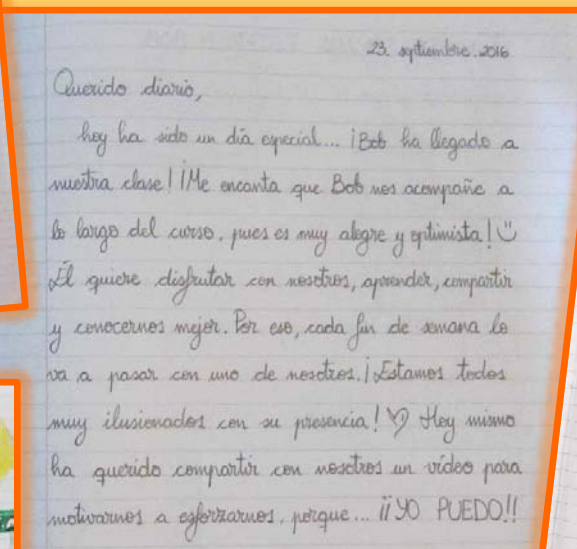 23. septiembre. 2016
Querido diario,
hoy ha sido un día especial... ¡Bob ha llegado a
nuestra clase! ¡Me encanta que Bob nos acompañe a
lo largo del curso, pues es muy alegre y optimista!
Él quiere disfrutar con nosotros, aprender, compartir
y conocernos mejor. Por eso, cada fin de semana lo
va a pasar con uno de nosotros. ¡Estamos todos
muy ilusionados con su presencia! Hoy mismo
ha querido compartir con nosotros un vídeo para
motivarnos a esforzarnos, porque... ¡¡YO PUEDO!!